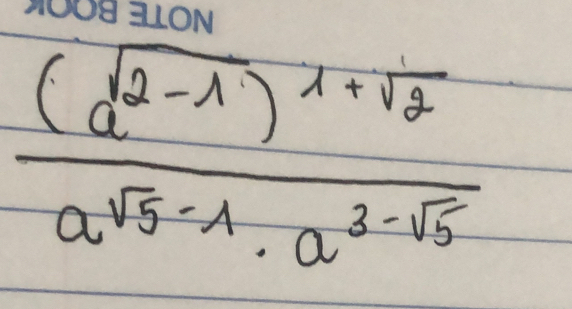 NOTE BOOK
(a^{\sqrt{2-1}})^{1+\sqrt{2}}
a^{\sqrt{5}-1} \cdot a^{3-\sqrt{5}}